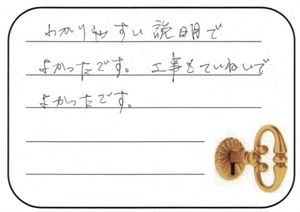 わかりやすい説明で
よかったです。工事もていねいで
よかったです。